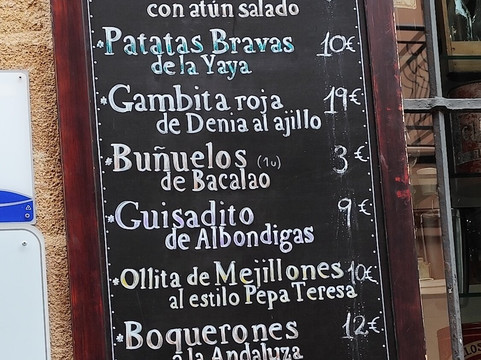 con atún salado
*Patatas Bravas 10€
de la Yaya
*Gambita roja 19€
de Denia al ajillo
*Buñuelos (1u) 3€
de Bacalao
*Guisadito 9€
de Albondigas
*Ollita de Mejillones 10€
al estilo Pepa Teresa
*Boquerones 12€
a la Andaluza